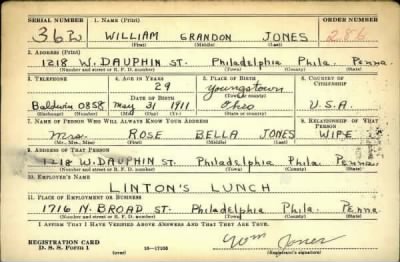 SERIAL NUMBER 1. NAME (Print) ORDER NUMBER
362 WILLIAM GRANDON JONES 286
(First) (Middle) (Last)
2. ADDRESS (Print)
1218 W. DAUPHIN ST. Philadelphia Phila. Penna.
(Number and street or R. F. D. number) (Town) (County) (State)
3. TELEPHONE 4. AGE IN YEARS 5. PLACE OF BIRTH 6. COUNTRY OF CITIZENSHIP
29 Youngstown
DATE OF BIRTH (Town or county)
Baldwin 0858 May 31 1911 Ohio U.S.A.
(Exchange) (Number) (Mo.) (Day) (Yr.) (State or country)
7. NAME OF PERSON WHO WILL ALWAYS KNOW YOUR ADDRESS 8. RELATIONSHIP OF THAT PERSON
Mrs. ROSE BELLA JONES WIFE
(Mr., Mrs., Miss) (First) (Middle) (Last)
9. ADDRESS OF THAT PERSON
1218 W. DAUPHIN ST. Philadelphia Phila. Penna.
(Number and street or R. F. D. number) (Town) (County) (State)
10. EMPLOYER'S NAME
LINTON'S LUNCH
11. PLACE OF EMPLOYMENT OR BUSINESS
1716 N. BROAD ST. Philadelphia Phila. Penna
(Number and street or R. F. D. number) (Town) (County) (State)
I AFFIRM THAT I HAVE VERIFIED ABOVE ANSWERS AND THAT THEY ARE TRUE.
REGISTRATION CARD
D. S. S. Form 1 (over) 16-17105 Wm Jones
(Registrant's signature)